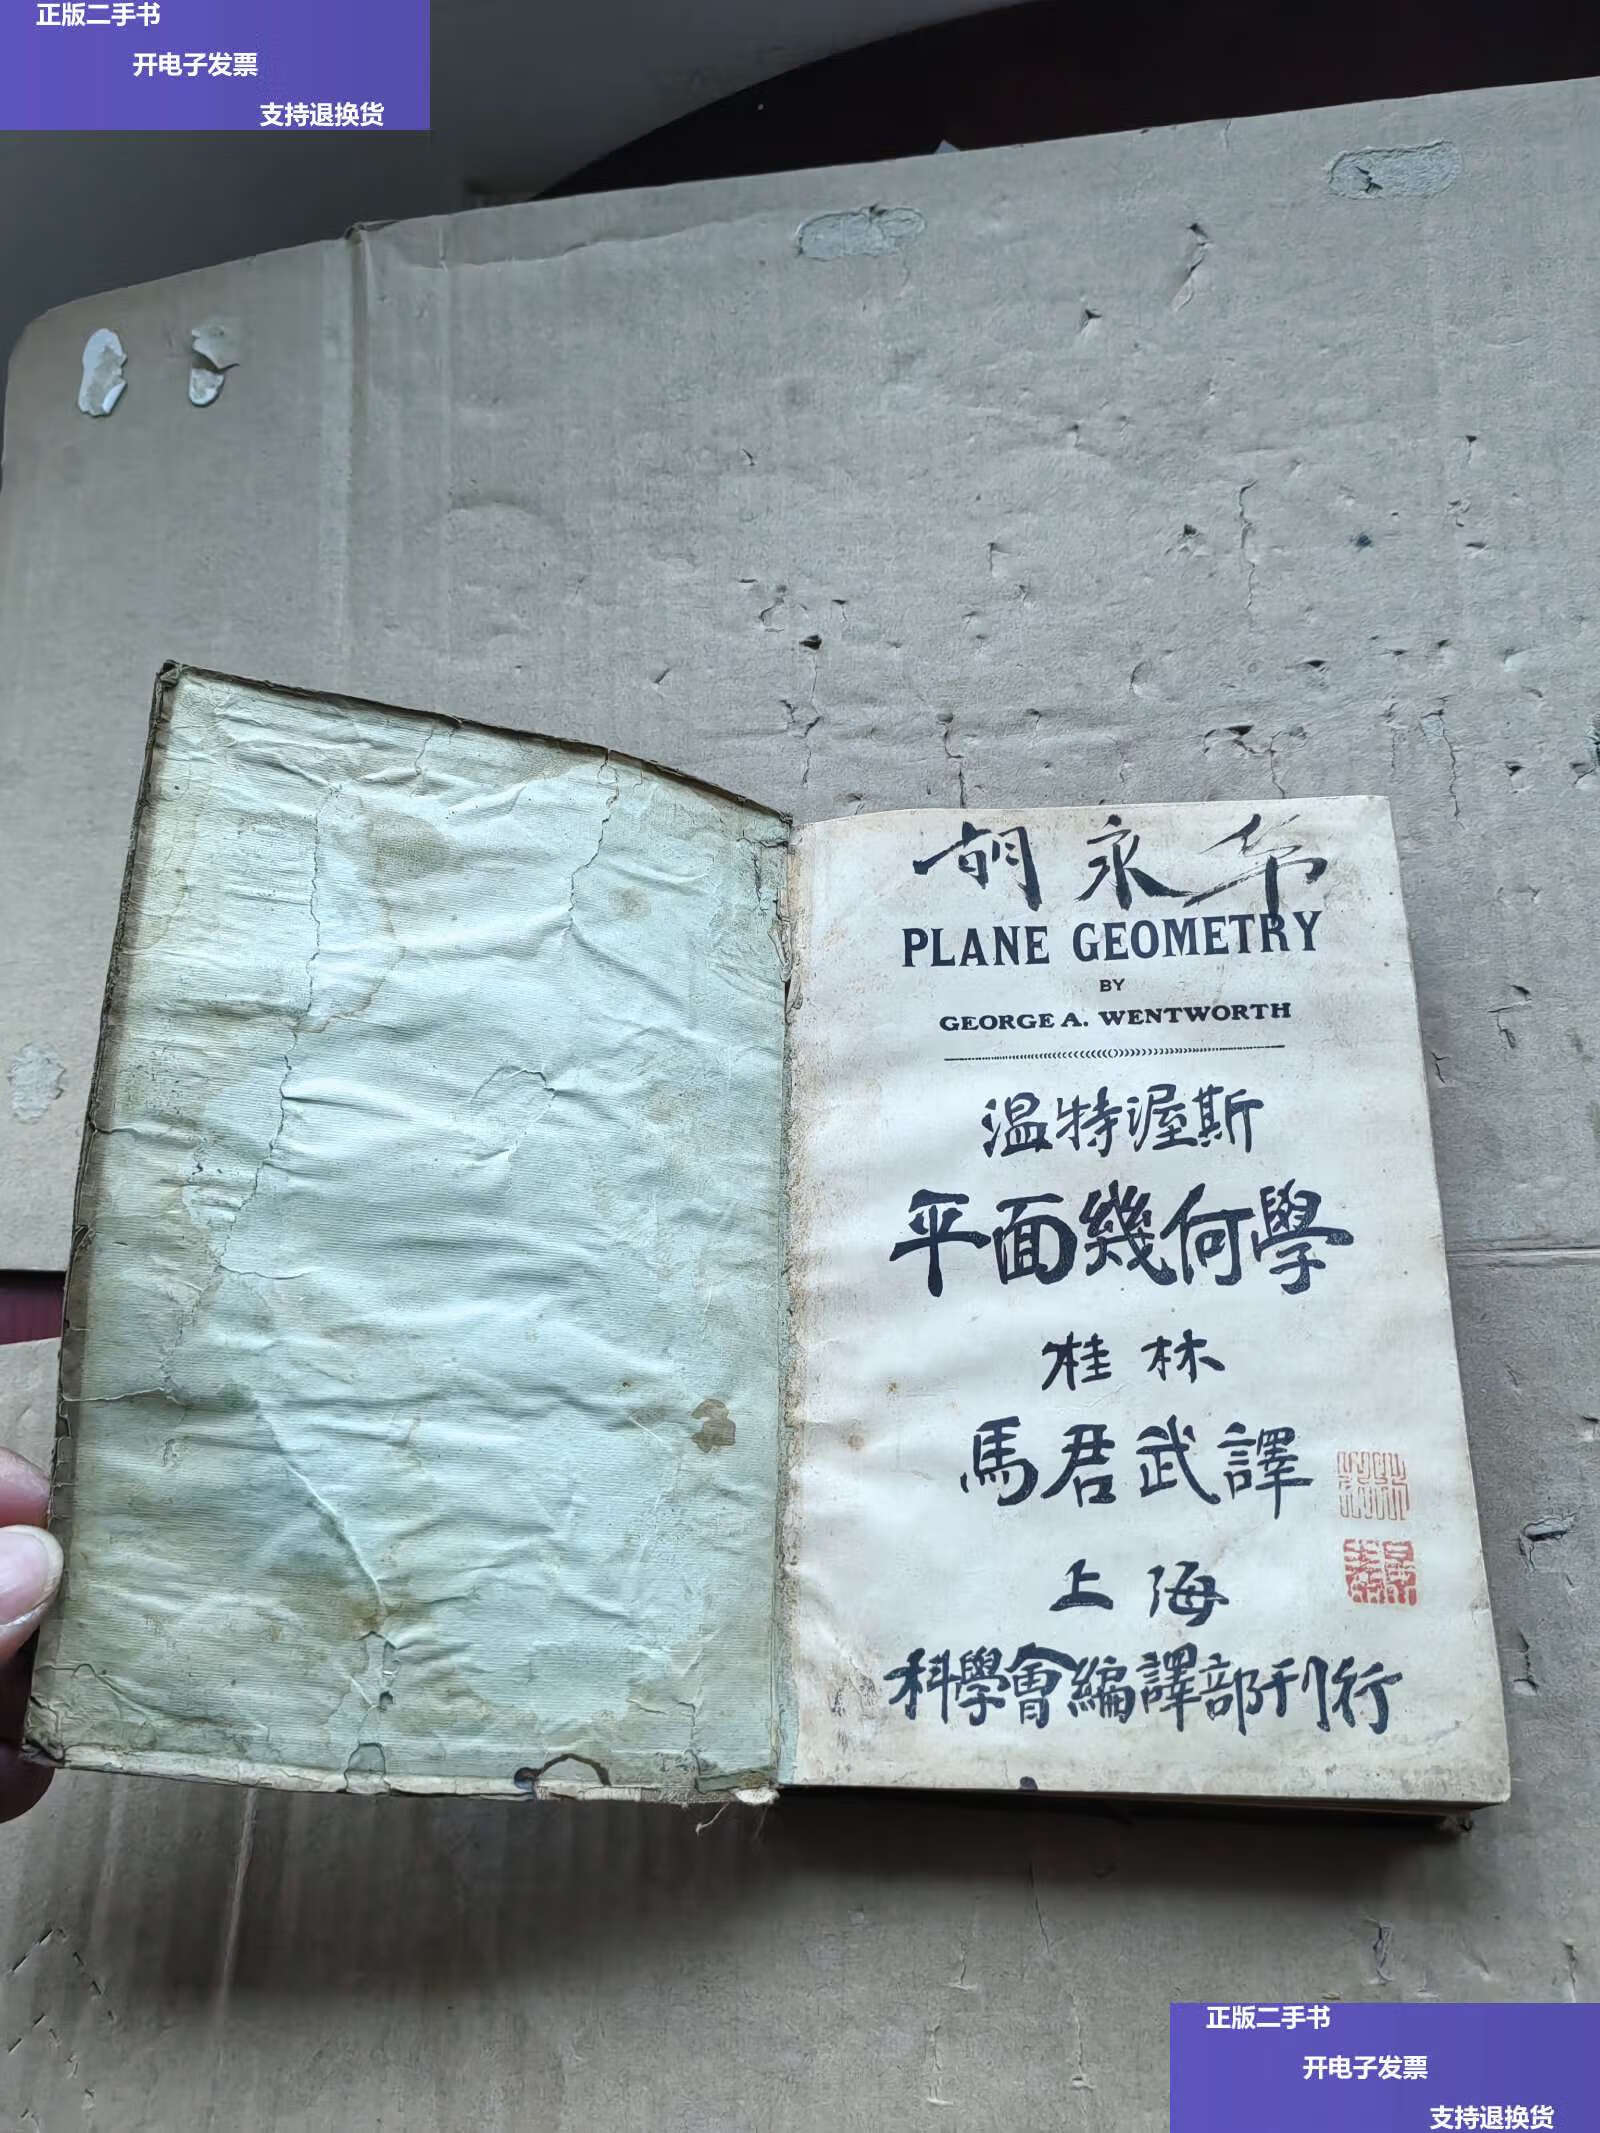 正版二手书
开电子发票
支持退换货
胡永
PLANE GEOMETRY
BY
GEORGE A. WENTWORTH
温特渥斯
平面幾何學
桂林
馬君武譯
上海
科學會編譯部刊行
正版二手书
开电子发票
支持退换货